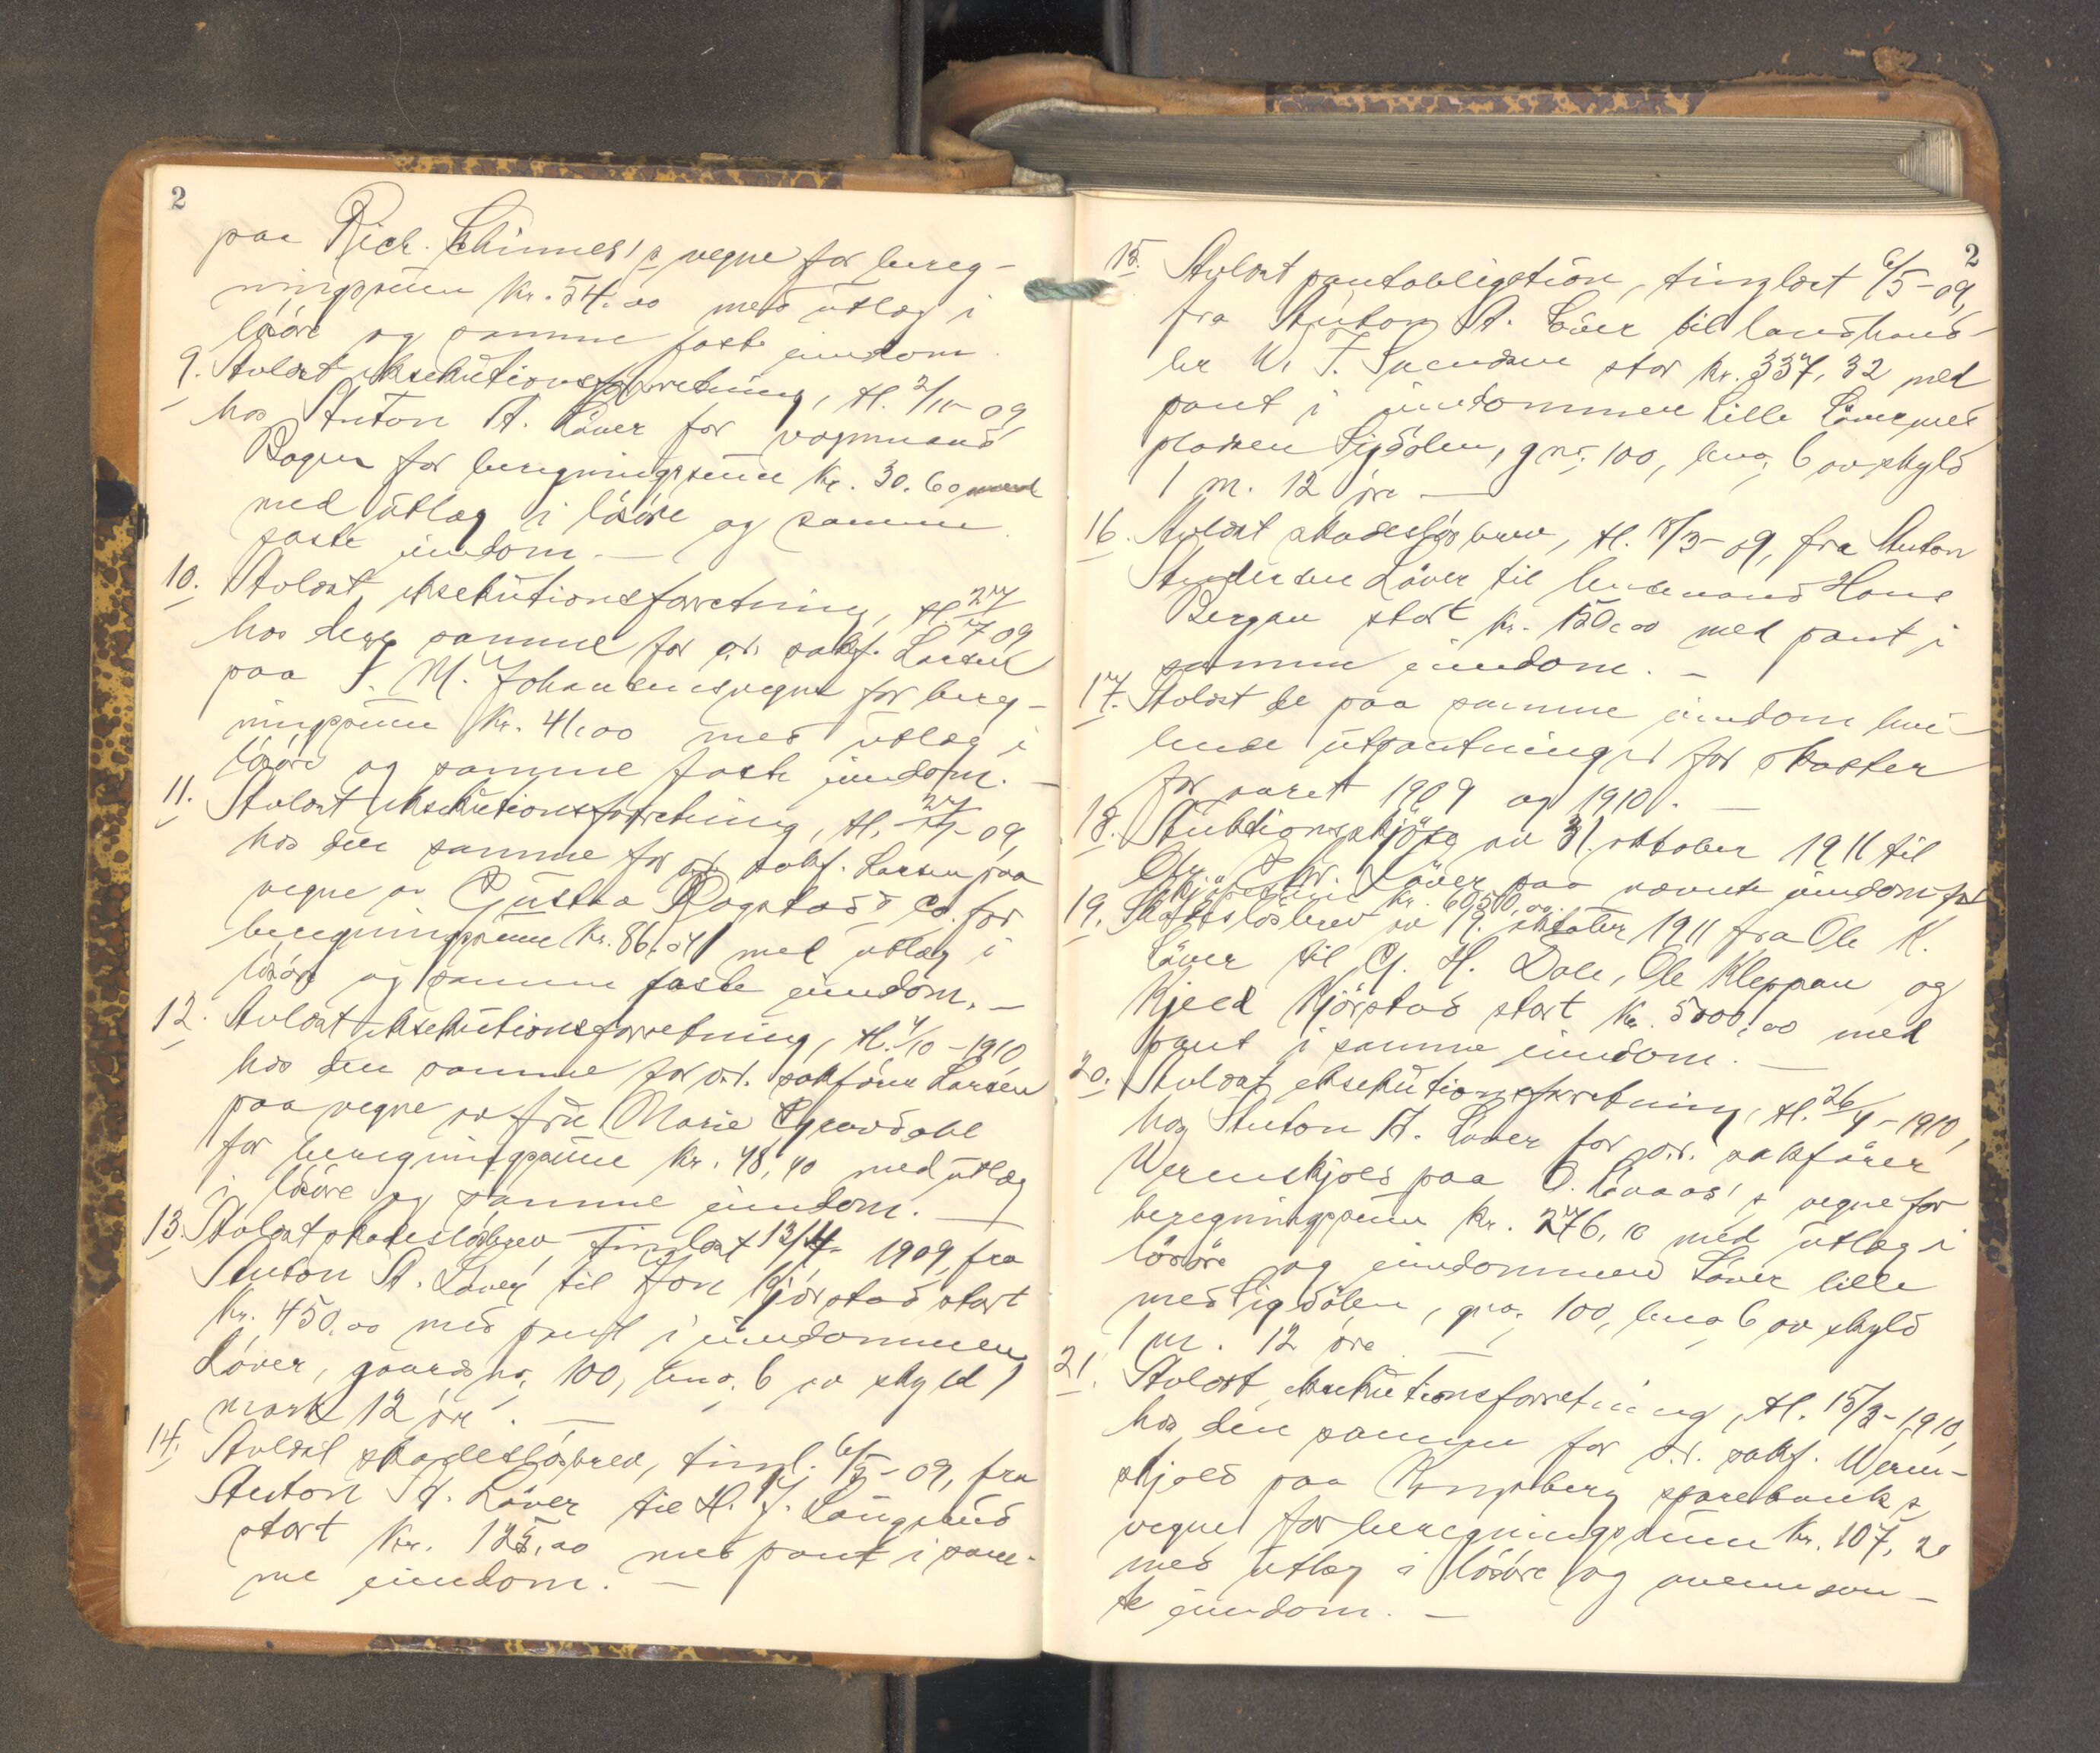 2
paa Rich. Schinnes's vegne for bereg-
ningssum kr. 54.00 med utlæg i
lösöre og samme faste eiendom.
9. Avlæst eksekutionsforretning, tl. 2/10-09
hos Anton A. Løver for vognmand
Bogen for beregningssum kr. 30.60
med utlæg i lösöre og samme
faste eiendom. —
10. Avlæst eksekutionsforretning, tl. 27/7 09
hos den samme for o.r. sakf. Larsen
paa J. M. Johansens vegne for bereg-
ningssum kr. 41.00 med utlæg i
lösöre og samme faste eiendom. —
11. Avlæst eksekutionsforretning, tl. 09,
hos den samme for o.r. sakf. Larsen paa
vegne av Gustha Rogstad & Co. for
beregningssum kr. 86.54 med utlæg i
lösöre og samme faste eiendom. —
12. Avlæst eksekutionsforretning, tl. 4/10-1910
hos den samme for o.r. sakfører Larsen
paa vegne av fru Marie
for beregningssum kr. 48,40 med utlæg
i lösöre og samme eiendom. —
13. Avlæst skadeslösbrev tinglæst 13/4- 1909, fra
Anton A. Løver til Jon Kjörstad stort
kr. 450.00 med pant i eiendommen
Løver, gaards no. 100, bno. 6 av skyld 1
mark 12 öre. —
14. Avlæst skadeslösbrev, tingl. 6/5-09, fra
Anton A. Løver til H. J. Langerud
stort kr. 125,00 med pant i sam-
me eiendom. —
2
15. Avlæst pantobligation, tinglæst 6/5-09,
fra Anton A. Løver til landhand-
ler W. F. Svendsen stor kr. 337,32 med
pant i eiendommen Lille Løver med
pladsen Sigdölen, gno. 100, bno. 6 av skyld
1 m. 12 öre —
16. Avlæst skadeslösbrev, tl. 18/3-09, fra Anton
Andersen Løver til lensmand Hans
Bergan stort kr. 150.00 med pant i
samme eiendom. —
17. Avlæst de paa samme eiendom hvi-
lende utpantninger for skatter
for aaret 1909 og 1910. —
18. Auktionsskjöte av 31. oktober 1911 til
Ole Kr. Løver paa nævnte eiendom for
kjöpesum kr.
19. Skadeslösbrev av 19. oktober 1911 fra Ole K.
Løver til G. H. Dale, Ole Kleppan og
Kjeld Kjörstad stort kr. 5000,00 med
pant i samme eiendom. —
20. Avlæst eksekutionsforretning, tl. 26/4-1910,
hos Anton A. Løver for o.r. sakfører
Werenskjold paa O. Lövaas's vegne for
beregningssum kr. 276,10 med utlæg i
lösöre og eiendommen Løver lille
med Sigdölen, gno. 100, bno 6 av skyld
1 m. 12 öre —
21. Avlæst eksekutionsforretning, tl. 15/3-1910,
hos den samme for o.r. sakf. Weren-
skjold paa Kongsberg sparebank's
vegne for beregningssum kr. 107,20
med utlæg i lösöre og ovennævn-
te eiendom. —